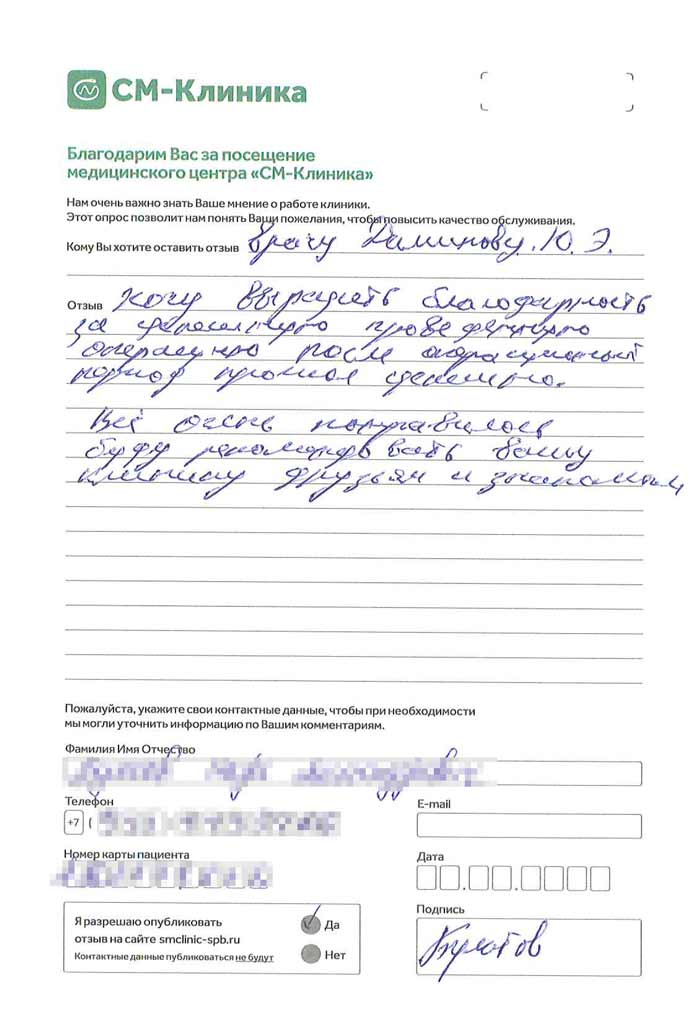 СМ-Клиника
Благодарим Вас за посещение
медицинского центра «СМ-Клиника»
Нам очень важно знать Ваше мнение о работе клиники.
Этот опрос позволит нам понять Ваши пожелания, чтобы повысить качество обслуживания.
Кому Вы хотите оставить отзыв Врачу Даминову. Ю. Э.
Отзыв Хочу выразить благодарность
за
операцию после операционный
период прошел
Всё очень понравилось
буду рекомендовать вашу
клинику друзьям и знакомым
Пожалуйста, укажите свои контактные данные, чтобы при необходимости
мы могли уточнить информацию по Вашим комментариям.
Фамилия Имя Отчество
Телефон
E-mail
+7 (
Номер карты пациента
Дата
Подпись
Я разрешаю опубликовать
отзыв на сайте smclinic-spb.ru
Контактные данные публиковаться не будут
Да
Нет